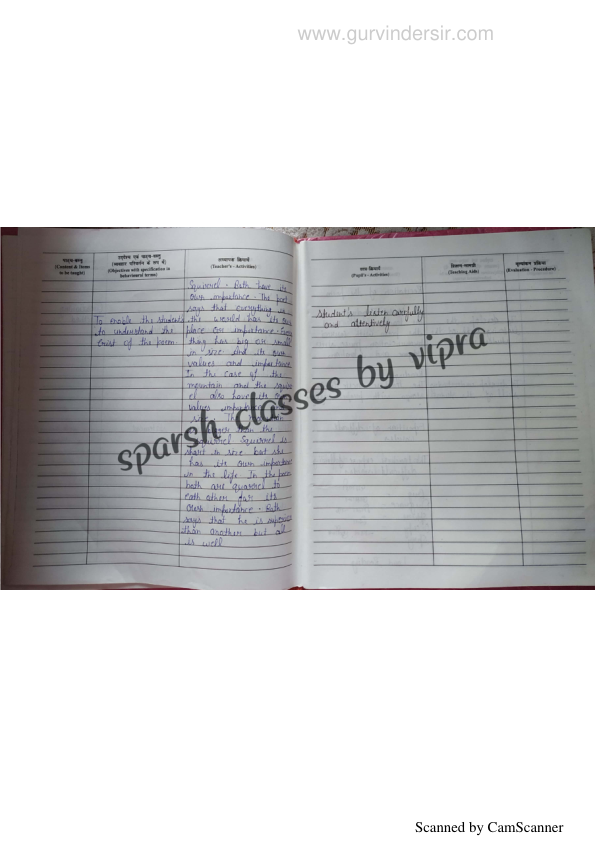 www.gurvindersir.com
पाठ्य-वस्तु
(Content & Items
to be taught)
उद्देश्य एवं पाठ्य-वस्तु
(व्यवहार परिवर्तन के रूप में)
(Objectives with specification in
behavioural terms)
अध्यापक क्रियायें
(Teacher's - Activities)
To enable the students
to understand the
Crust of the poem
Squirrel. Both have its
own importance. The poet
says that everything in
the world has its own
place or importance. Every
thing has big or small
in size and its own
values and importance
In the case of the
mountain and the
el also have its own
values
size. The
than the
Squirrel Squirrel is
short in size but she
has its own importance
in the life In the poem
both are quarrel to
each other for its
own importance. Both
says that he is superior
than another but all
is well
छात्र क्रियायें
(Pupil's - Activities)
शिक्षण-सामग्री
(Teaching Aids)
मूल्यांकन प्रक्रिया
(Evaluation - Procedure)
Student's listen carefully
and attentively
sparsh classes by vipra
Scanned by CamScanner